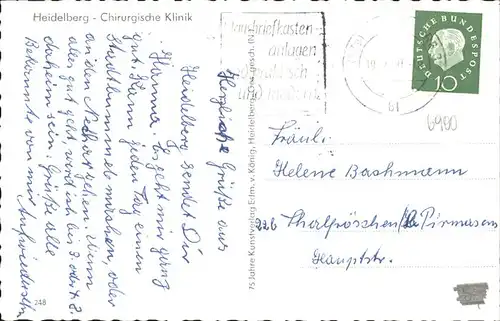 Heidelberg - Chirurgische Klinik
Hausbriefkasten-
anlagen
DEUTSCHE BUNDESPOST
10
6900
Herzliche Grüße aus
Heidelberg sendet Dir
Hanna. Es geht mir ganz
gut. Kann jeden Tag einen
Stadtbummel machen, oder
an den Neckar gehen. Wenn
alles gut geht, werd ich bis 7. oder 8.
daheim sein. Grüße alle
Bekannte von mir Aufwiedersehn
248
75 Jahre Kunstverlag Edm. v. König, Heidelberg
Fräul.
Helene Bachmann
22b Thalfröschen b/ Pirmasens
Hauptstr.